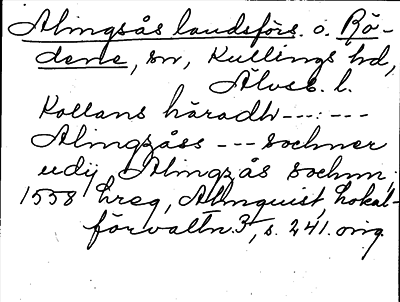 Alingsås landsförs. o. Rö-
dene, sn, Kullings hd,
Älvsb. l.
Kollans häradh --- ---
Alingzåss --- sochner
udij Alingzås sochnn;
1558 hreg, Almquist, Lokal-
förvaltn. 3, s. 241. orig.